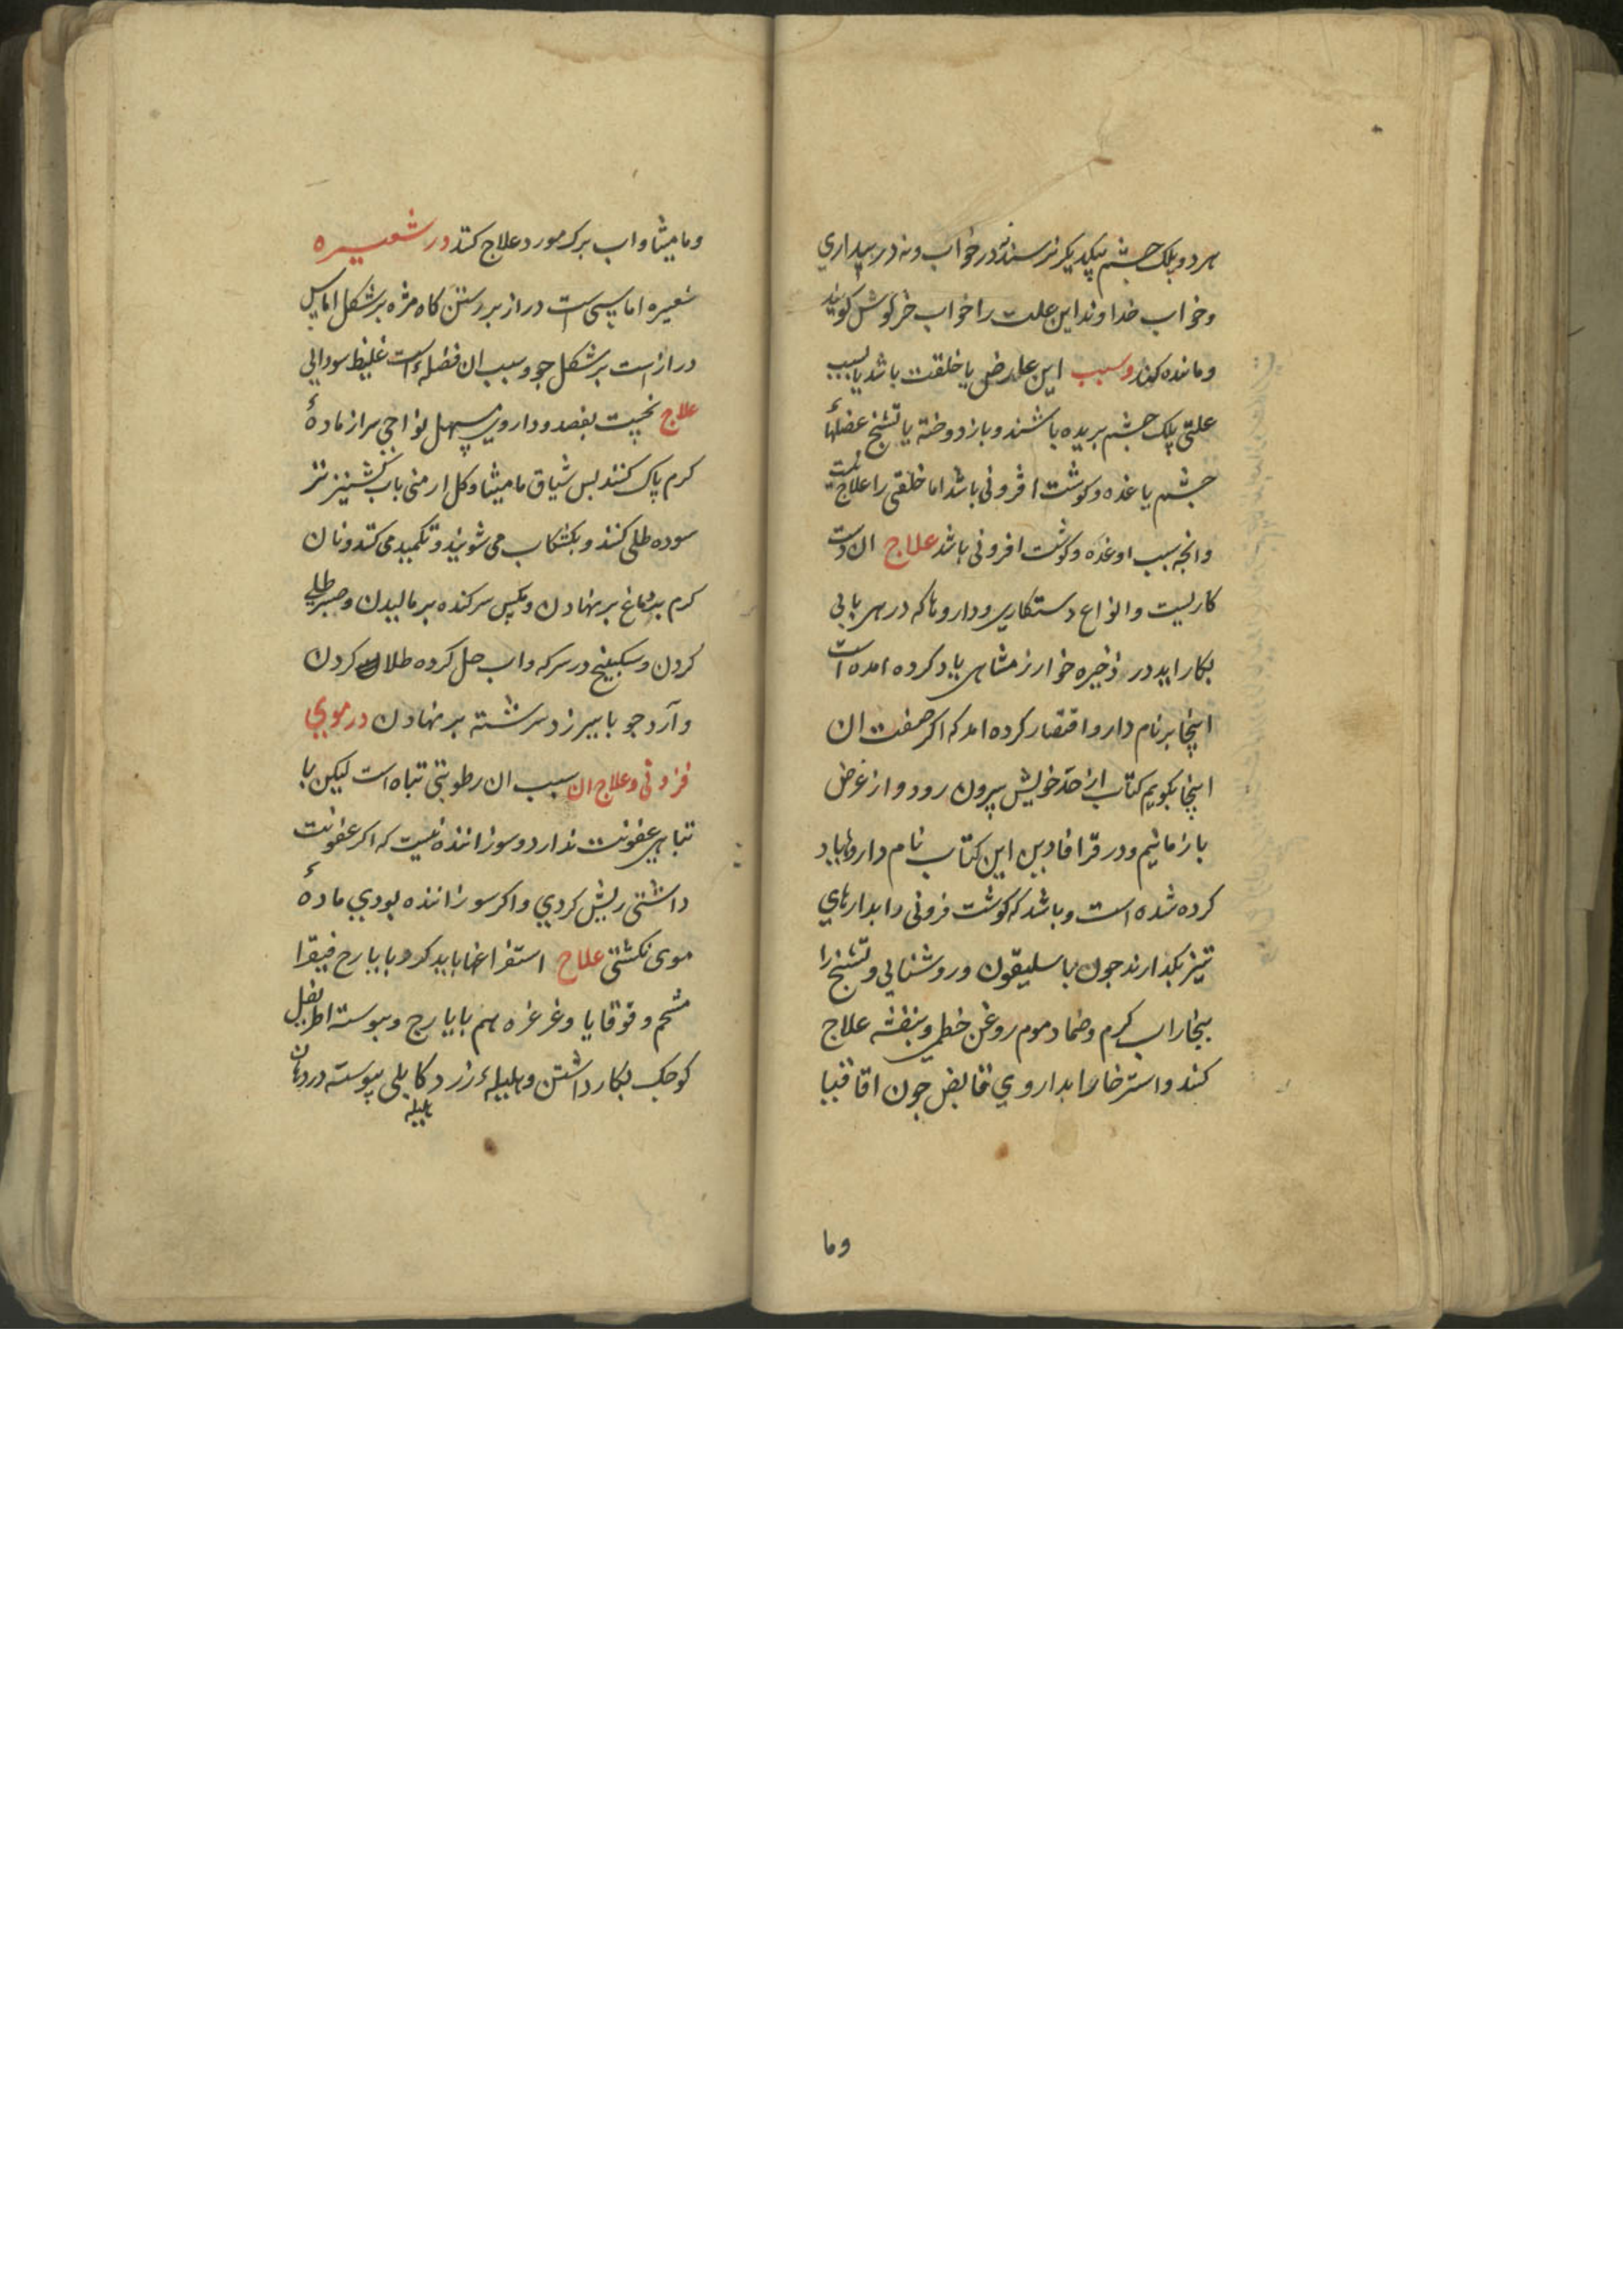 هر دو پلک چشم بیکدیکر نرسند نه در خواب و نه در بیداری
و خواب خداوند این علت را خواب خرکوش کویند
و مانده کوند و سبب این عارض یا خلقت باشد یا بسبب
علتی پلک چشم بریده باشند و باز دوخته یا تشنج عضلهاء
چشم یا غده و کوشت افزونی باشد اما خلقتی را علاج نیست
و انچه سبب او غده و کوشت افزونی باشد علاج ان دست
کاریست و انواع دستکاری و داروها که در هر بابی
بکار اید در ذخیره خوارزمشاهی یاد کرده امده است
اینجا بر نام دارو اقتصار کرده امد که اکر صفت ان
اینجا بکویم کتاب از حد خویش بیرون رود و از غرض
باز مانیم و در قرافادین این کتاب نام داروها یاد
کرده شده است و باشد که کوشت فزونی را بدارهای
تیز بکدارند چون باسلیقون و روشنایی و تشنج را
ببخار اب کرم و ضماد موم روغن خطمی و بنفشه علاج
کنند و استرخا را بداروی قابض چون اقاقیا
وما
و مامیثا و اب برک مورد علاج کنند در شعیره
شعیره اماسی است دراز بر رستن کاه مژه بر شکل اماس
دراز است بر شکل جو و سبب ان فضلهٔ است غلیظ سودایی
علاج نخست بفصد و داروی مسهل نواحی سر از مادهٔ
کرم پاک کنند بس شیاف مامیثا و کل ارمنی باب کشنیز تر
سوده طلی کنند و بکشکاب می شویند و تکمید می کنند و نان
کرم بر نهادن و مکس سر کنده بر مالیدن و صبر طلی
کردن و سکبینج در سرکه و اب حل کرده طلا کردن
و آرد جو با بیرزد سرشته بر نهادن در موی
فزونی و علاج ان سبب ان رطوبتی تباه است لیکن با
تباهی عفونت ندارد و سوزاننده نیست که اکر عفونت
داشتی ریش کردی و اکر سوزاننده بودی مادهٔ
موی نکشتی علاج استفراغها باید کرد بایارج فیقرا
شحم و قوقایا و غرغره هم بایارج و پیوسته اطریفل
کوچک بکار داشتن و هلیلهٔ زرد کابلی پیوسته در دهان
هلیله